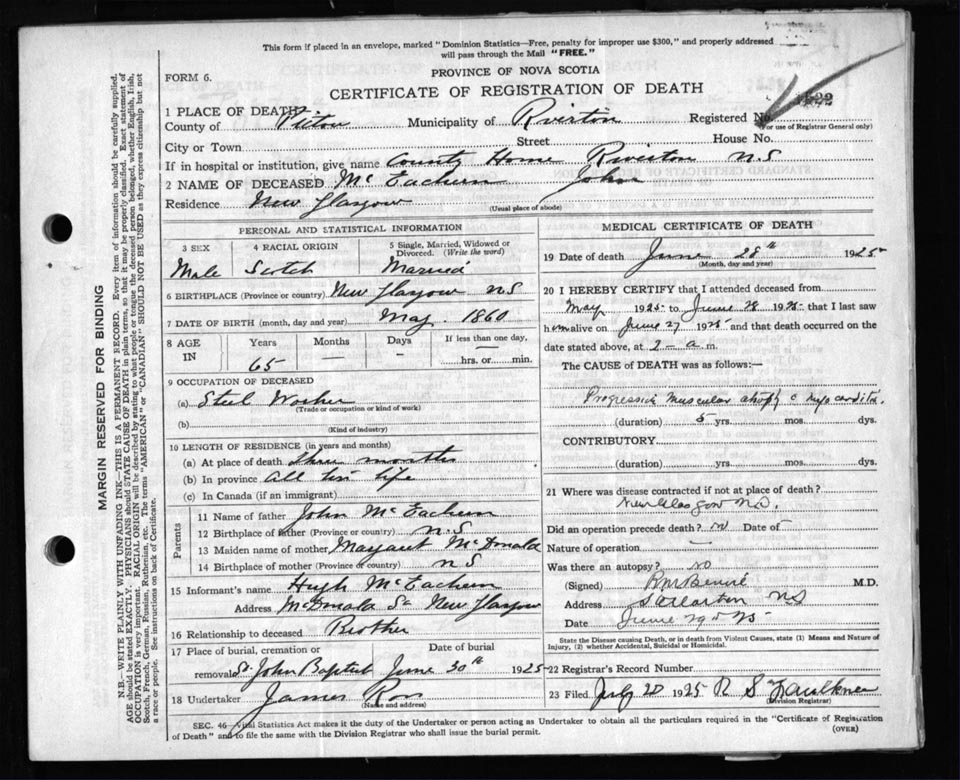 This form if placed in an envelope, marked "Dominion Statistics—Free, penalty for improper use $300," and properly addressed
will pass through the Mail "FREE."
FORM 6.
PROVINCE OF NOVA SCOTIA
CERTIFICATE OF REGISTRATION OF DEATH
1 PLACE OF DEATH
County of Pictou Municipality of Riverton Registered No.
(For use of Registrar General only)
City or Town Street House No.
If in hospital or institution, give name County Home Riverton N.S
2 NAME OF DECEASED McEachern John
Residence New Glasgow
(Usual place of abode)
PERSONAL AND STATISTICAL INFORMATION
3 SEX 4 RACIAL ORIGIN 5 Single, Married, Widowed or Divorced. (Write the word)
Male Scotch Married
6 BIRTHPLACE (Province or country) New Glasgow NS
7 DATE OF BIRTH (month, day and year) May 1860
8 AGE IN Years Months Days If less than one day,
65 — — hrs. or min.
9 OCCUPATION OF DECEASED
(a) Steel Worker
(Trade or occupation or kind of work)
(b)
(Kind of industry)
10 LENGTH OF RESIDENCE (in years and months)
(a) At place of death three months
(b) In province All his life
(c) In Canada (if an immigrant)
Parents
11 Name of father John McEachern
12 Birthplace of father (Province or country) N.S
13 Maiden name of mother Margaret McDonald
14 Birthplace of mother (Province or country) NS
15 Informant's name Hugh McEachern
Address McDonald St New Glasgow
16 Relationship to deceased Brother
17 Place of burial, cremation or removal Date of burial
St. John Baptist June 30th 1925
18 Undertaker James Ross
(Name and address)
MEDICAL CERTIFICATE OF DEATH
19 Date of death June 28th 1925
(Month, day and year)
20 I HEREBY CERTIFY that I attended deceased from
May 1925 to June 28 1925 that I last saw
him alive on June 27 1925 and that death occurred on the
date stated above, at 2 a.m.
The CAUSE of DEATH was as follows:—
Progressive muscular atrophy c
(duration) 5 yrs. mos. dys.
CONTRIBUTORY
(duration) yrs. mos. dys.
21 Where was disease contracted if not at place of death?
New Glasgow N.S.
Did an operation precede death? no Date of -
Nature of operation —
Was there an autopsy? no
(Signed) M.D.
Address Stellarton NS
Date June 29 25
State the Disease causing Death, or in death from Violent Causes, state (1) Means and Nature of
Injury, (2) whether Accidental, Suicidal or Homicidal.
22 Registrar's Record Number
23 Filed July 20 1925 R S Faulkner
(Division Registrar)
SEC. 46 Vital Statistics Act makes it the duty of the Undertaker or person acting as Undertaker to obtain all the particulars required in the "Certificate of Registration
of Death" and to file the same with the Division Registrar who shall issue the burial permit.
(OVER)
MARGIN RESERVED FOR BINDING
N.B.—WRITE PLAINLY WITH UNFADING INK—THIS IS A PERMANENT RECORD. Every item of information should be carefully supplied.
AGE should be stated EXACTLY. PHYSICIANS should STATE CAUSE OF DEATH in plain terms, so that it may be properly classified. Exact statement of
OCCUPATION is very important. RACIAL ORIGIN will be described by stating to what people or tongue the deceased person belonged, whether English, Irish,
Scotch, French, German, Russian, Ruthenian, etc. The terms "AMERICAN" or "CANADIAN" SHOULD NOT BE USED as they express citizenship but not
a race or people. See instructions on back of Certificate.